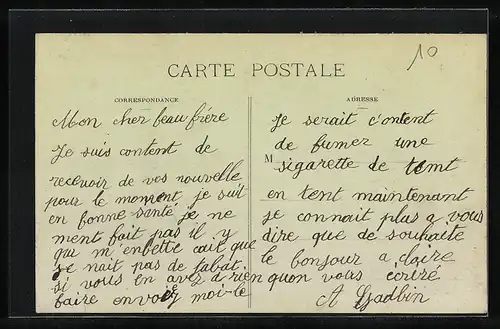 10
CARTE POSTALE
CORRESPONDANCE
Mon cher beau frére
Je suis content de
recevoir de vos nouvelle
pour le moment je suit
en bonne santé je ne
ment fait pas il y
qui m'enbette cait que
je nait pas de tabat
si vous en avez di rien
faire envoiez moi le
ADRESSE
Je serait c'ontent
de fumer une
M
sigarette de temt
en tent maintenant
je connait plus a vous
dire que de souhaite
le bonjour a claire
quon vous écriré
A Gadbin